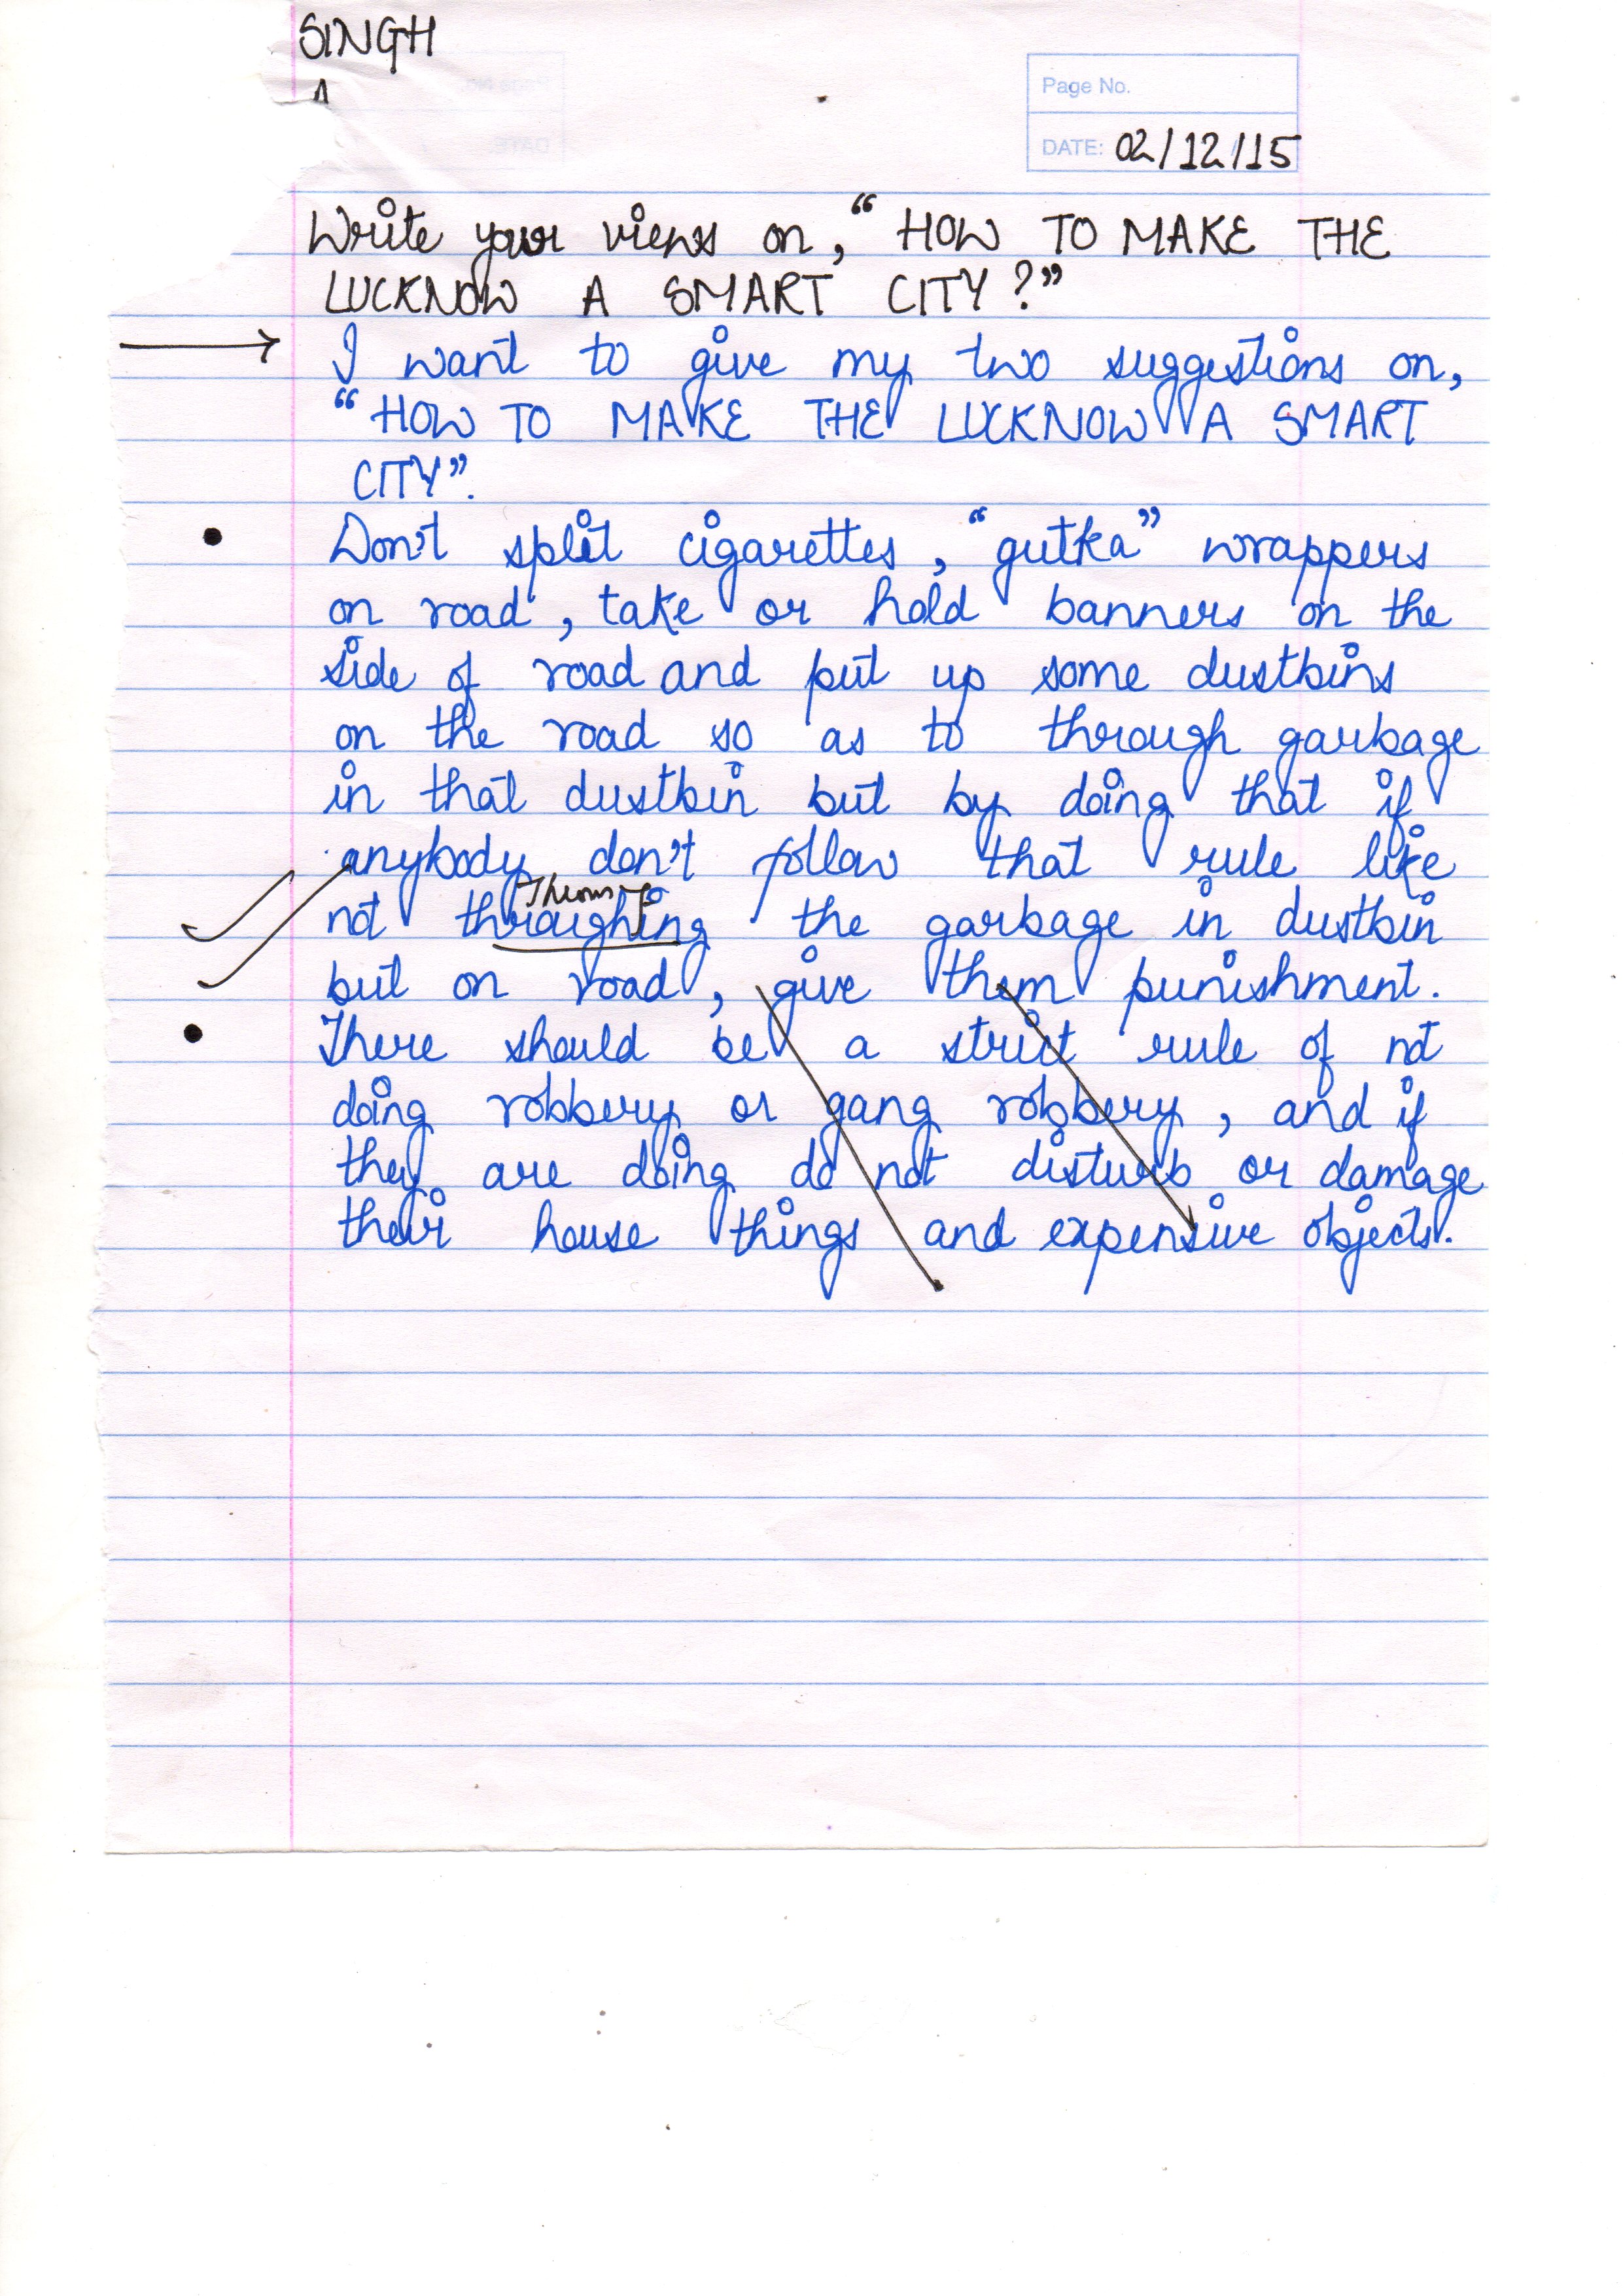 SINGH
A
Page No.
DATE: 02/12/15
Write your views on, “HOW TO MAKE THE
LUCKNOW A SMART CITY?”
I want to give my two suggestions on,
“HOW TO MAKE THE LUCKNOW A SMART
CITY”.
Don't split cigarettes, “gutka” wrappers
on road, take or hold banners on the
side of road and put up some dustbins
on the road so as to through garbage
in that dustbin but by doing that if
anybody don't follow that rule like
not throughing the garbage in dustbin
but on road, give them punishment.
There should be a strict rule of not
doing robbery or gang robbery, and if
they are doing do not disturb or damage
their house things and expensive objects.